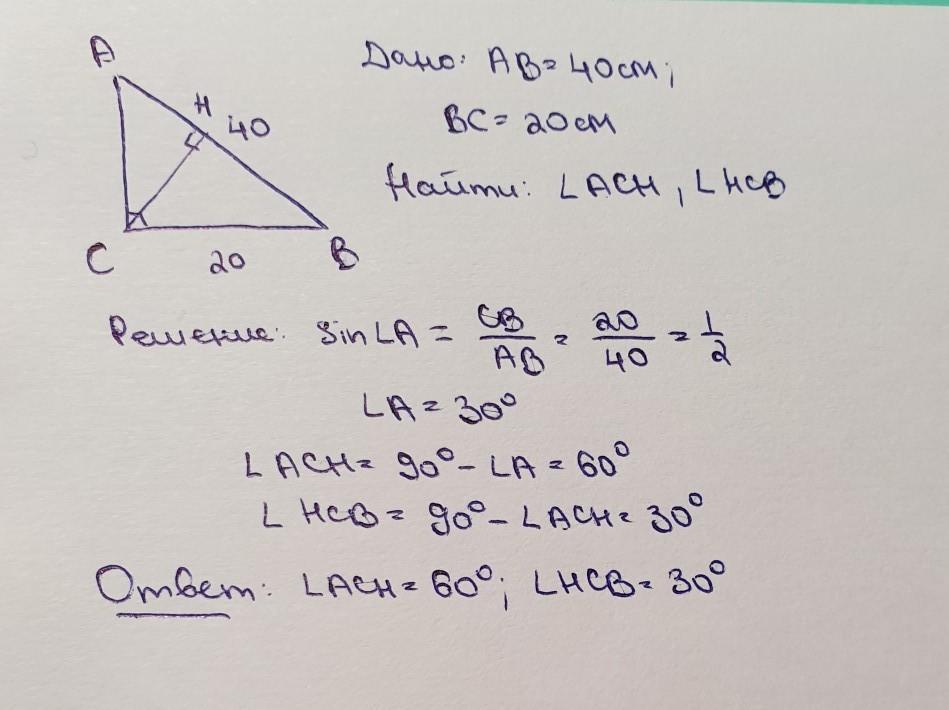 A
H
40
C
20
B
Дано: AB = 40 см;
BC = 20 см
Найти: ∠ACH, ∠HCB
Решение: sin∠A = CB/AB = 20/40 = 1/2
∠A = 30°
∠ACH = 90° - ∠A = 60°
∠HCB = 90° - ∠ACH = 30°
Ответ: ∠ACH = 60°; ∠HCB = 30°